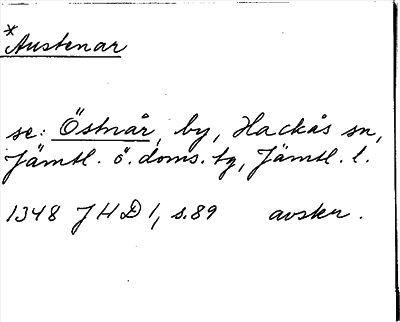 *Austenar
se: Östnår, by, Hackås sn,
Jämtl. ö. doms. tg, Jämtl. l.
1348 JHD 1, s.89 avskr.